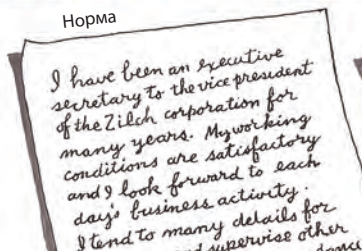 Норма
I have been an executive
secretary to the vice president
of the Zilch corporation for
many years. My working
conditions are satisfactory
and I look forward to each
day's business activity.
I tend to many details for
and supervise other